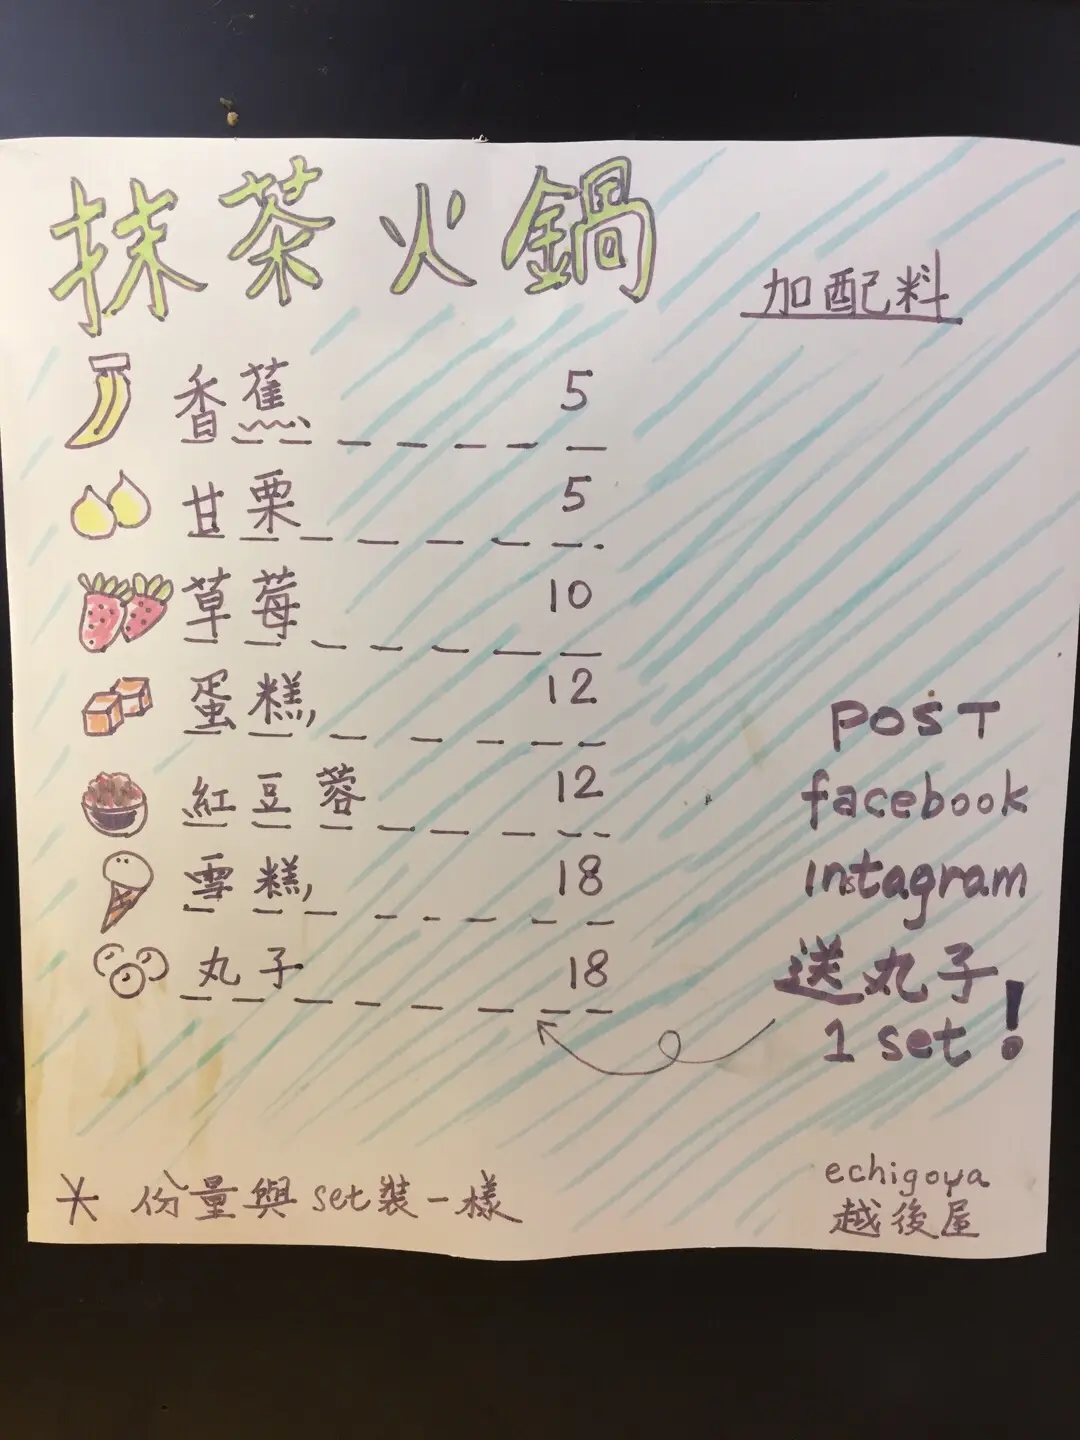 抹茶火鍋
加配料
香蕉 5
甘栗 5
草莓 10
蛋糕 12
紅豆蓉 12
雪糕 18
丸子 18
POST
facebook
Instagram
送丸子
1 set!
* 份量與set裝一樣
echigoya
越後屋